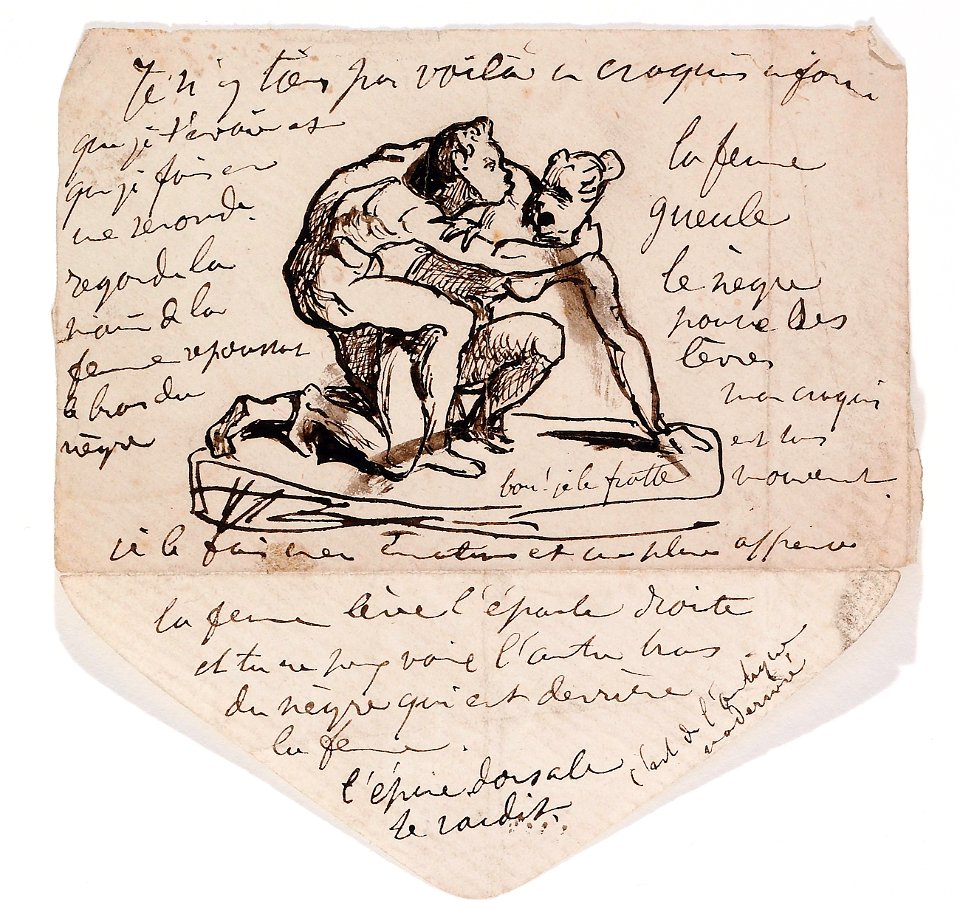 Je n'y tiens pas voilà un croquis informe
que je t'envoie et
que je fais en
une seconde.
regarde la
main de la
femme repoussant
le bras du
nègre
la femme
gueule
le nègre
pousse des
lèvres
mon croquis
est sans
mouvement.
bon! je le frotte
je le fais en et plus
la femme lève l'épaule droite
et tu ne peux voir l'autre bras
du nègre qui est derrière
la femme.
l'épine dorsale
se raidit.
c'est de l'antique
modernisé